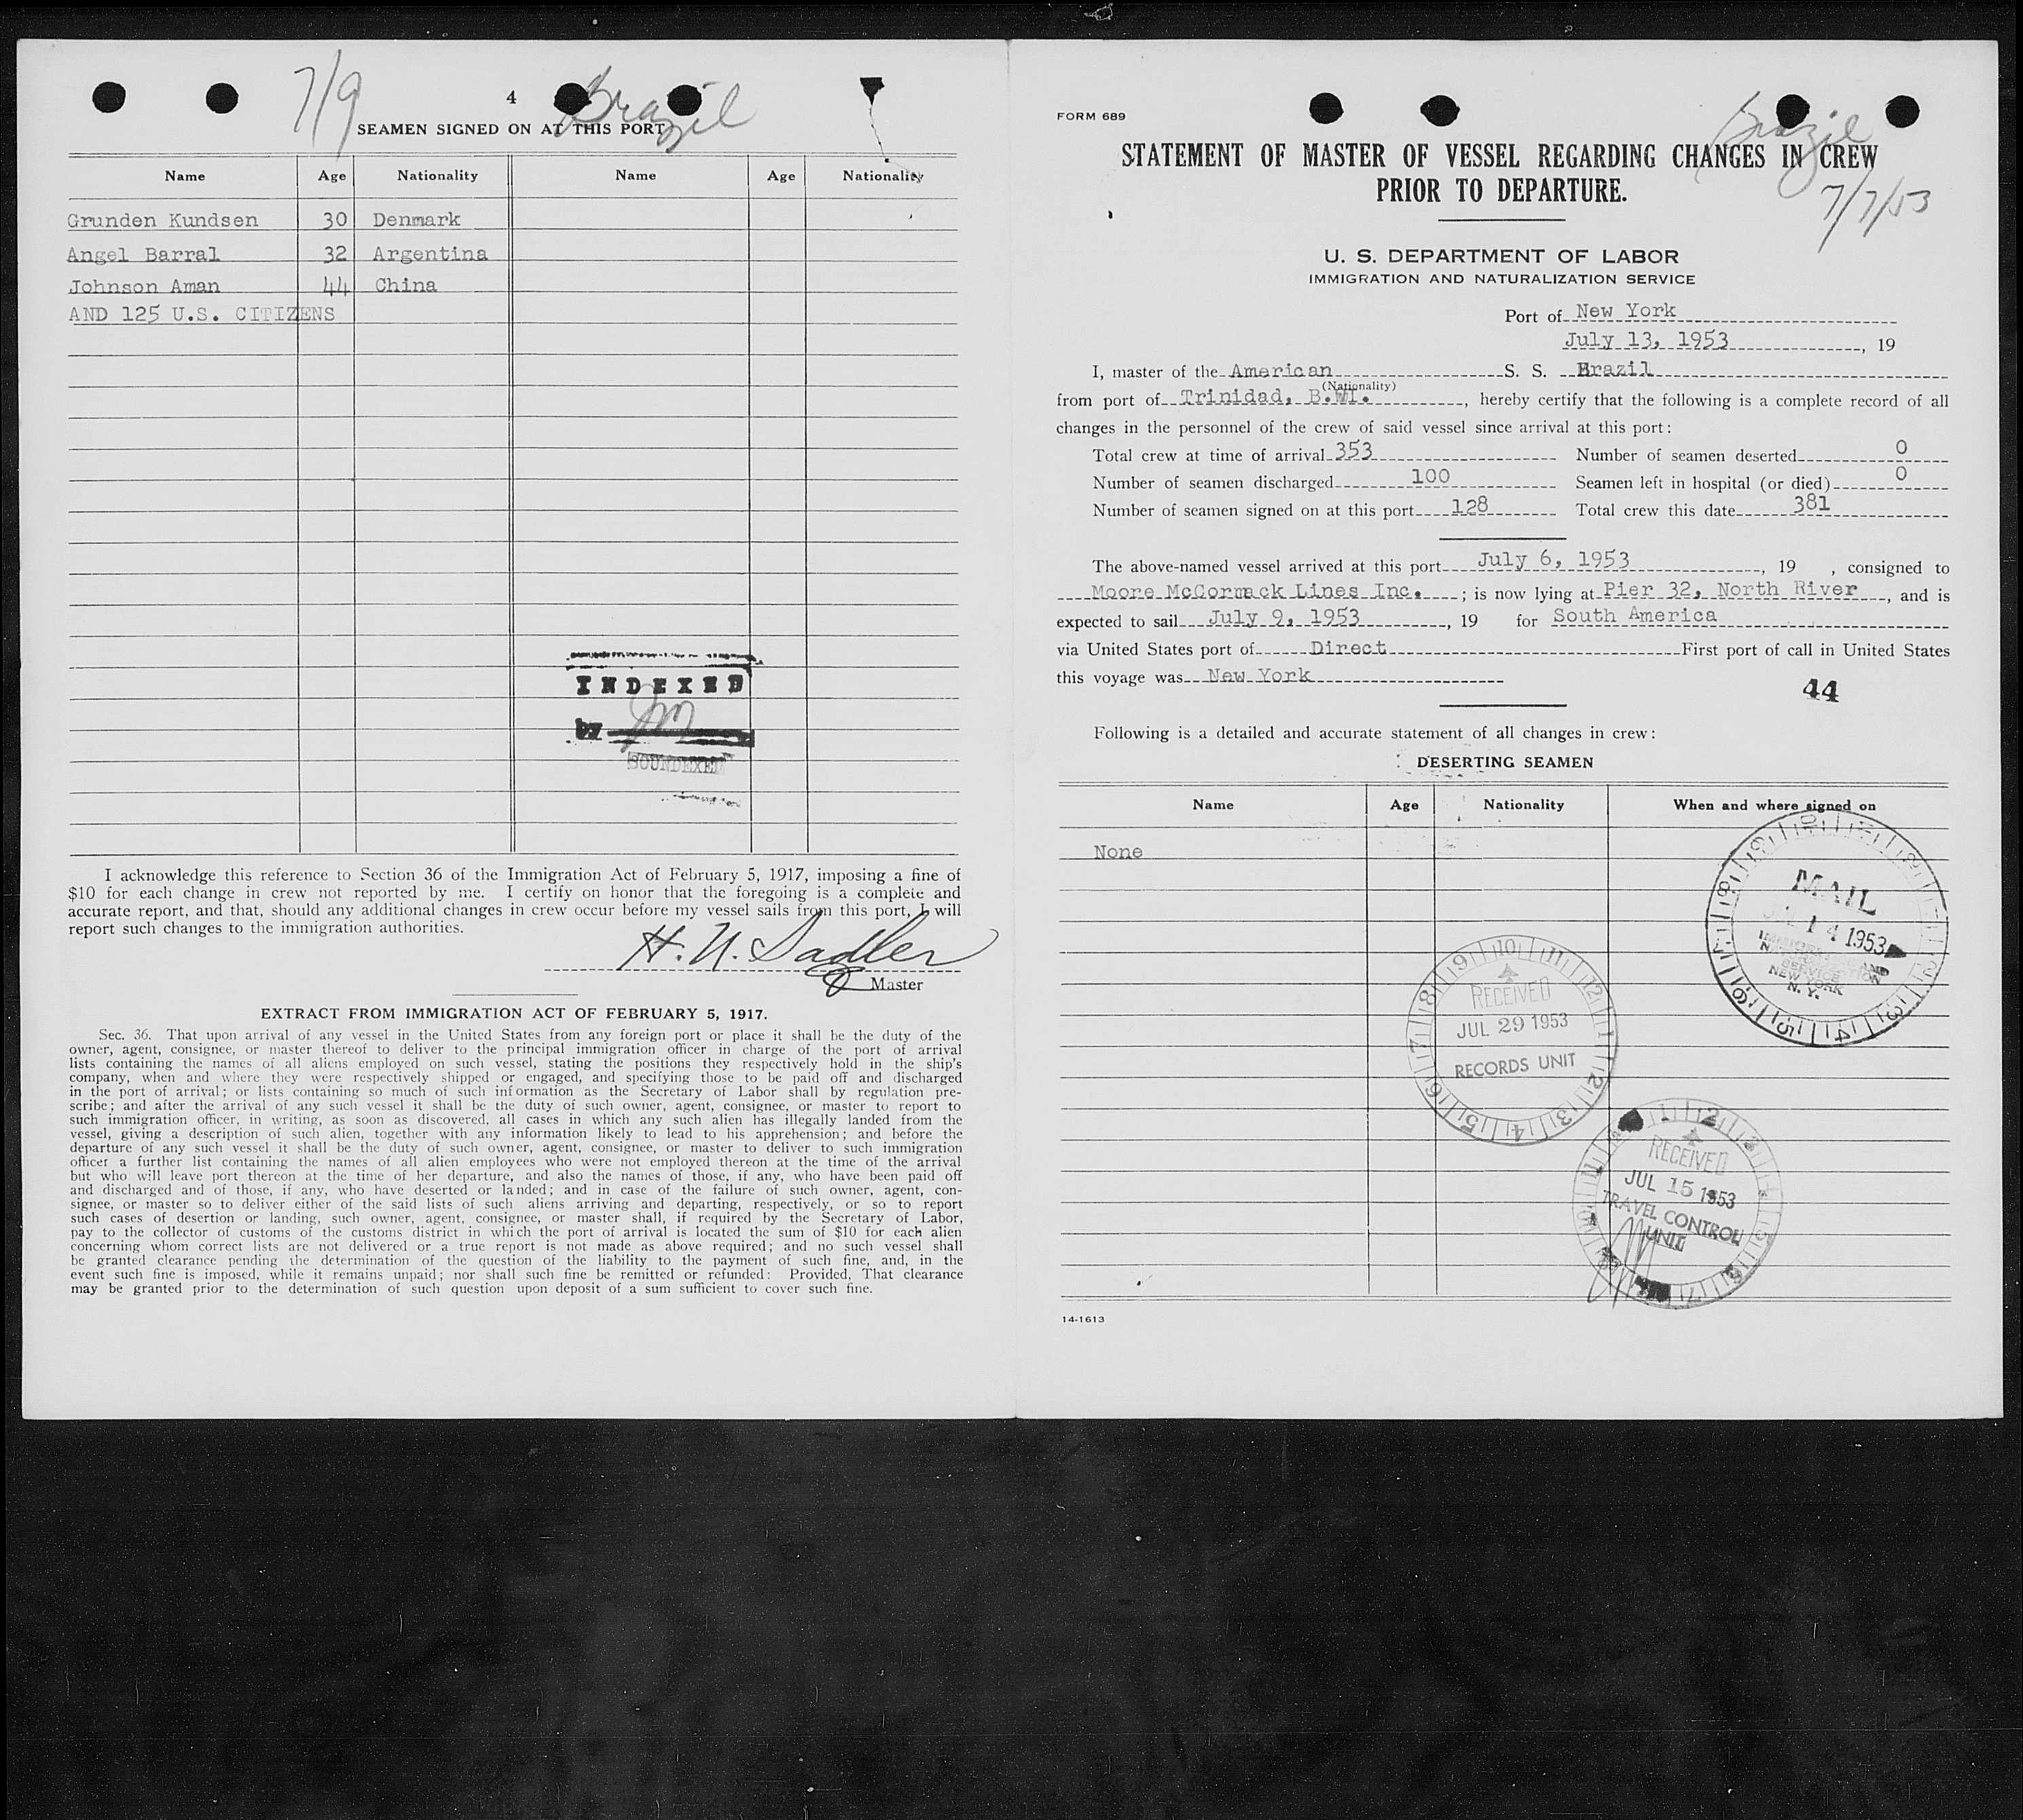 7/9
4
Brazil
SEAMEN SIGNED ON AT THIS PORT
Name Age Nationality Name Age Nationality
Grunden Kundsen 30 Denmark
Angel Barral 32 Argentina
Johnson Aman 44 China
AND 125 U.S. CITIZENS
INDEXED
by
SOUNDEXED
I acknowledge this reference to Section 36 of the Immigration Act of February 5, 1917, imposing a fine of
$10 for each change in crew not reported by me. I certify on honor that the foregoing is a complete and
accurate report, and that, should any additional changes in crew occur before my vessel sails from this port, I will
report such changes to the immigration authorities.
H. N. Sadler
Master
EXTRACT FROM IMMIGRATION ACT OF FEBRUARY 5, 1917.
Sec. 36. That upon arrival of any vessel in the United States from any foreign port or place it shall be the duty of the
owner, agent, consignee, or master thereof to deliver to the principal immigration officer in charge of the port of arrival
lists containing the names of all aliens employed on such vessel, stating the positions they respectively hold in the ship's
company, when and where they were respectively shipped or engaged, and specifying those to be paid off and discharged
in the port of arrival; or lists containing so much of such information as the Secretary of Labor shall by regulation pre-
scribe; and after the arrival of any such vessel it shall be the duty of such owner, agent, consignee, or master to report to
such immigration officer, in writing, as soon as discovered, all cases in which any such alien has illegally landed from the
vessel, giving a description of such alien, together with any information likely to lead to his apprehension; and before the
departure of any such vessel it shall be the duty of such owner, agent, consignee, or master to deliver to such immigration
officer a further list containing the names of all alien employees who were not employed thereon at the time of the arrival
but who will leave port thereon at the time of her departure, and also the names of those, if any, who have been paid off
and discharged and of those, if any, who have deserted or landed; and in case of the failure of such owner, agent, con-
signee, or master so to deliver either of the said lists of such aliens arriving and departing, respectively, or so to report
such cases of desertion or landing, such owner, agent, consignee, or master shall, if required by the Secretary of Labor,
pay to the collector of customs of the customs district in which the port of arrival is located the sum of $10 for each alien
concerning whom correct lists are not delivered or a true report is not made as above required; and no such vessel shall
be granted clearance pending the determination of the question of the liability to the payment of such fine, and, in the
event such fine is imposed, while it remains unpaid; nor shall such fine be remitted or refunded: Provided, That clearance
may be granted prior to the determination of such question upon deposit of a sum sufficient to cover such fine.
FORM 689
Brazil
7/7/53
STATEMENT OF MASTER OF VESSEL REGARDING CHANGES IN CREW
PRIOR TO DEPARTURE.
U. S. DEPARTMENT OF LABOR
IMMIGRATION AND NATURALIZATION SERVICE
Port of New York
July 13, 1953, 19
I, master of the American S. S. Brazil
(Nationality)
from port of Trinidad, B.WI., hereby certify that the following is a complete record of all
changes in the personnel of the crew of said vessel since arrival at this port:
Total crew at time of arrival 353 Number of seamen deserted 0
Number of seamen discharged 100 Seamen left in hospital (or died) 0
Number of seamen signed on at this port 128 Total crew this date 381
The above-named vessel arrived at this port July 6, 1953, 19 , consigned to
Moore McCormack Lines Inc. ; is now lying at Pier 32, North River, and is
expected to sail July 9, 1953, 19 for South America
via United States port of Direct First port of call in United States
this voyage was New York
44
Following is a detailed and accurate statement of all changes in crew:
DESERTING SEAMEN
Name Age Nationality When and where signed on
None
MAIL
JUL 14 1953
IMMIGRATION AND
NATURALIZATION
SERVICE
NEW YORK
N. Y.
RECEIVED
JUL 29 1953
RECORDS UNIT
RECEIVED
JUL 15 1953
TRAVEL CONTROL
UNIT
14-1613